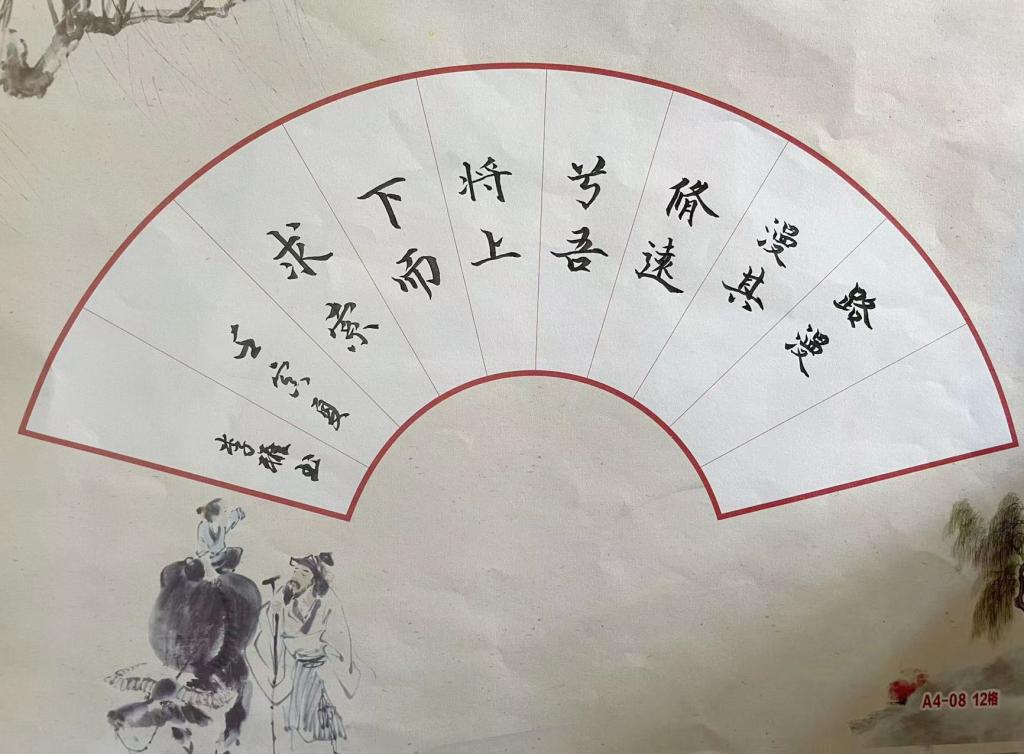 路漫
漫其
脩遠
兮吾
将上
下而
求索
壬寅夏
李书
A4-08 12格